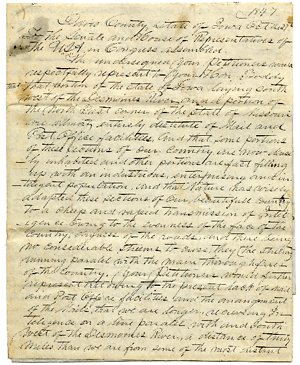 1847
Davis County, State of Iowa Oct 21st
To the Senate and House of Representatives of the
U.S.A. in Congress Assembled
The undersigned your Petitioners would
respectfully represent to your Hon. Body
that portion of the State of Iowa laying south
west of the Desmoines River and a portion of
the North East corner of the State of Missouri
are almost entirely destitute of Mail and
Post Office facilities. And that some portions
of these sections of our Country are now densely
inhabited and other portions are fast filling
up with an industrious, enterprising and in-
teligent population, and that Nature has wisely
adapted these sections of our beautifull country
to a cheap and rapid transmission of intell-
igence owing to the evenness of the face of the
Country, dryness of the roads, and their being
no considerable streams to cross, they the streams
running parallel with the main thoroughfares
of the Country. Your Petitioners would further
represent that owing to the present lack of mail
and Post Office facilities and the arrangement
of the Mails that we are longer receiving In-
teligence on a line paralel with and South
West of the Desmoines River a distance of thirty
Miles than we are from some of the most distant